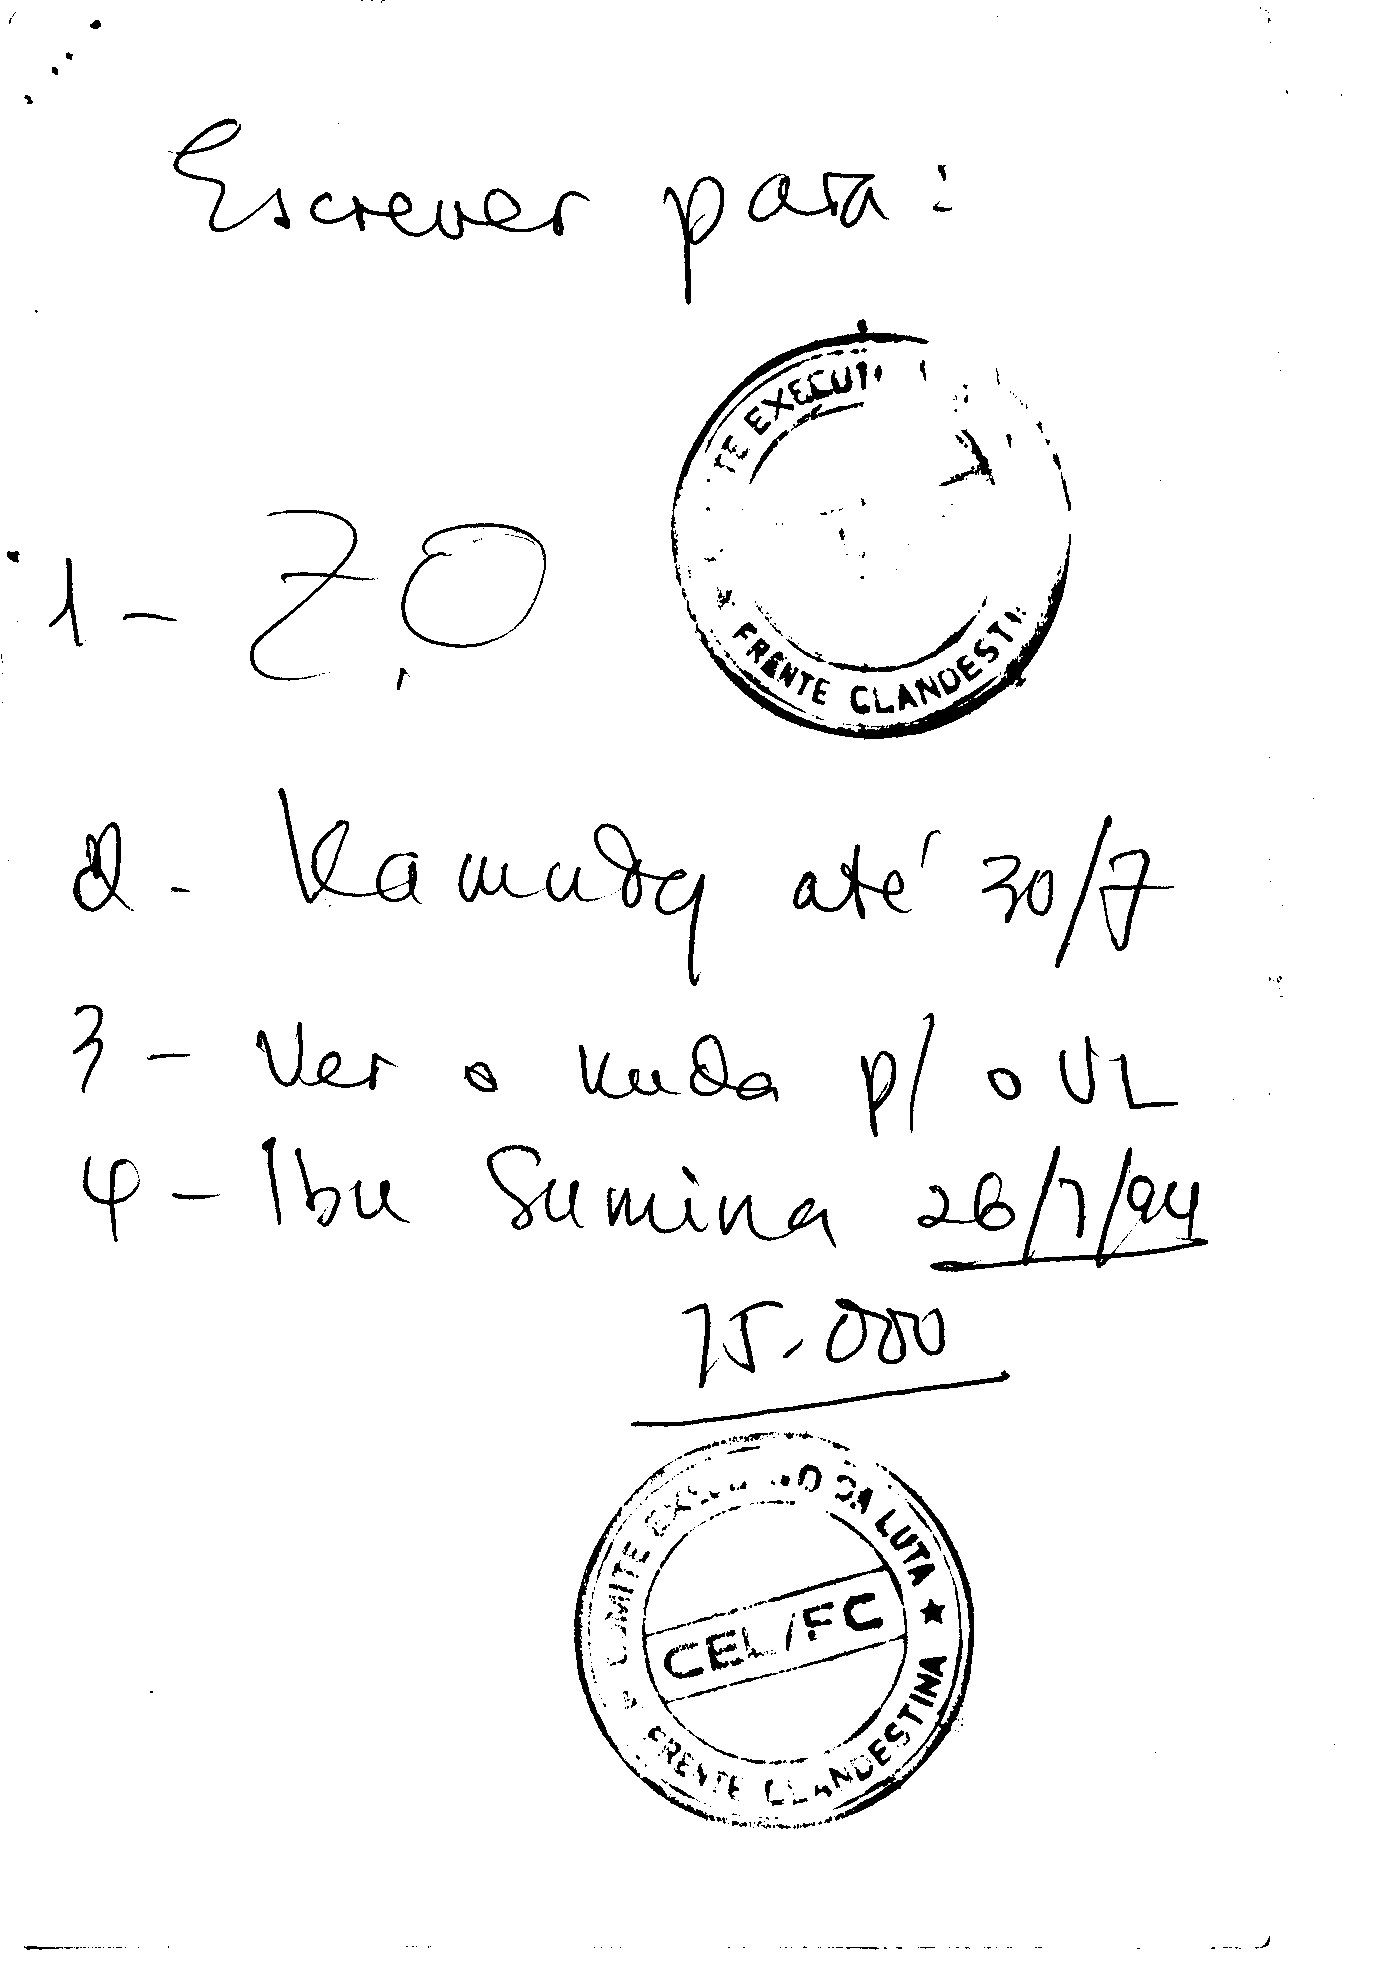 Escrever para:
TE EXECUTI
FRENTE CLANDESTIN
1 - Z.O
2 - Kamudy até 30/7
3 - Ver o kuda p/ o VL
4 - Ibu Sumina 26/7/94
75.000
COMITE EXECUTIVO DA LUTA ★
CEL/FC
FRENTE CLANDESTINA